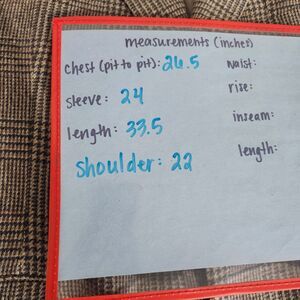 measurements (inches)
chest (pit to pit): 26.5
sleeve: 24
length: 33.5
shoulder: 22
waist:
rise:
inseam:
length: